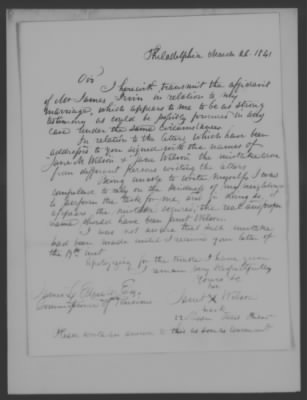 Philadelphia March 26, 1841
Sir
I herewith transmit the affidavit
of Mr James Irvin in relation to my
marriage, which appears to me to be as strong
testimony as could be possibly procured in any
case under the same circumstances
In relation to the letters which have been
addressed to you signed with the names of
Jane M. Wilson & Jane Wilson the mistake arose
from different persons writing the letters
Being unable to write myself I was
compelled to rely on the kindness of my neighbors
to perform the task for me, and in doing so it
appears, the mistake occurred, the real and proper
name should have been Janet Wilson.
I was not aware that such mistake
had been made until I received your letter of
the 19th inst
Apologizing for the trouble I have given
I remain very Respectfully
Yours &c
her
Janet X Wilson
mark
James L. Edwards Esq.
Commissioner of Pensions
Please send an answer to this as soon as convenient